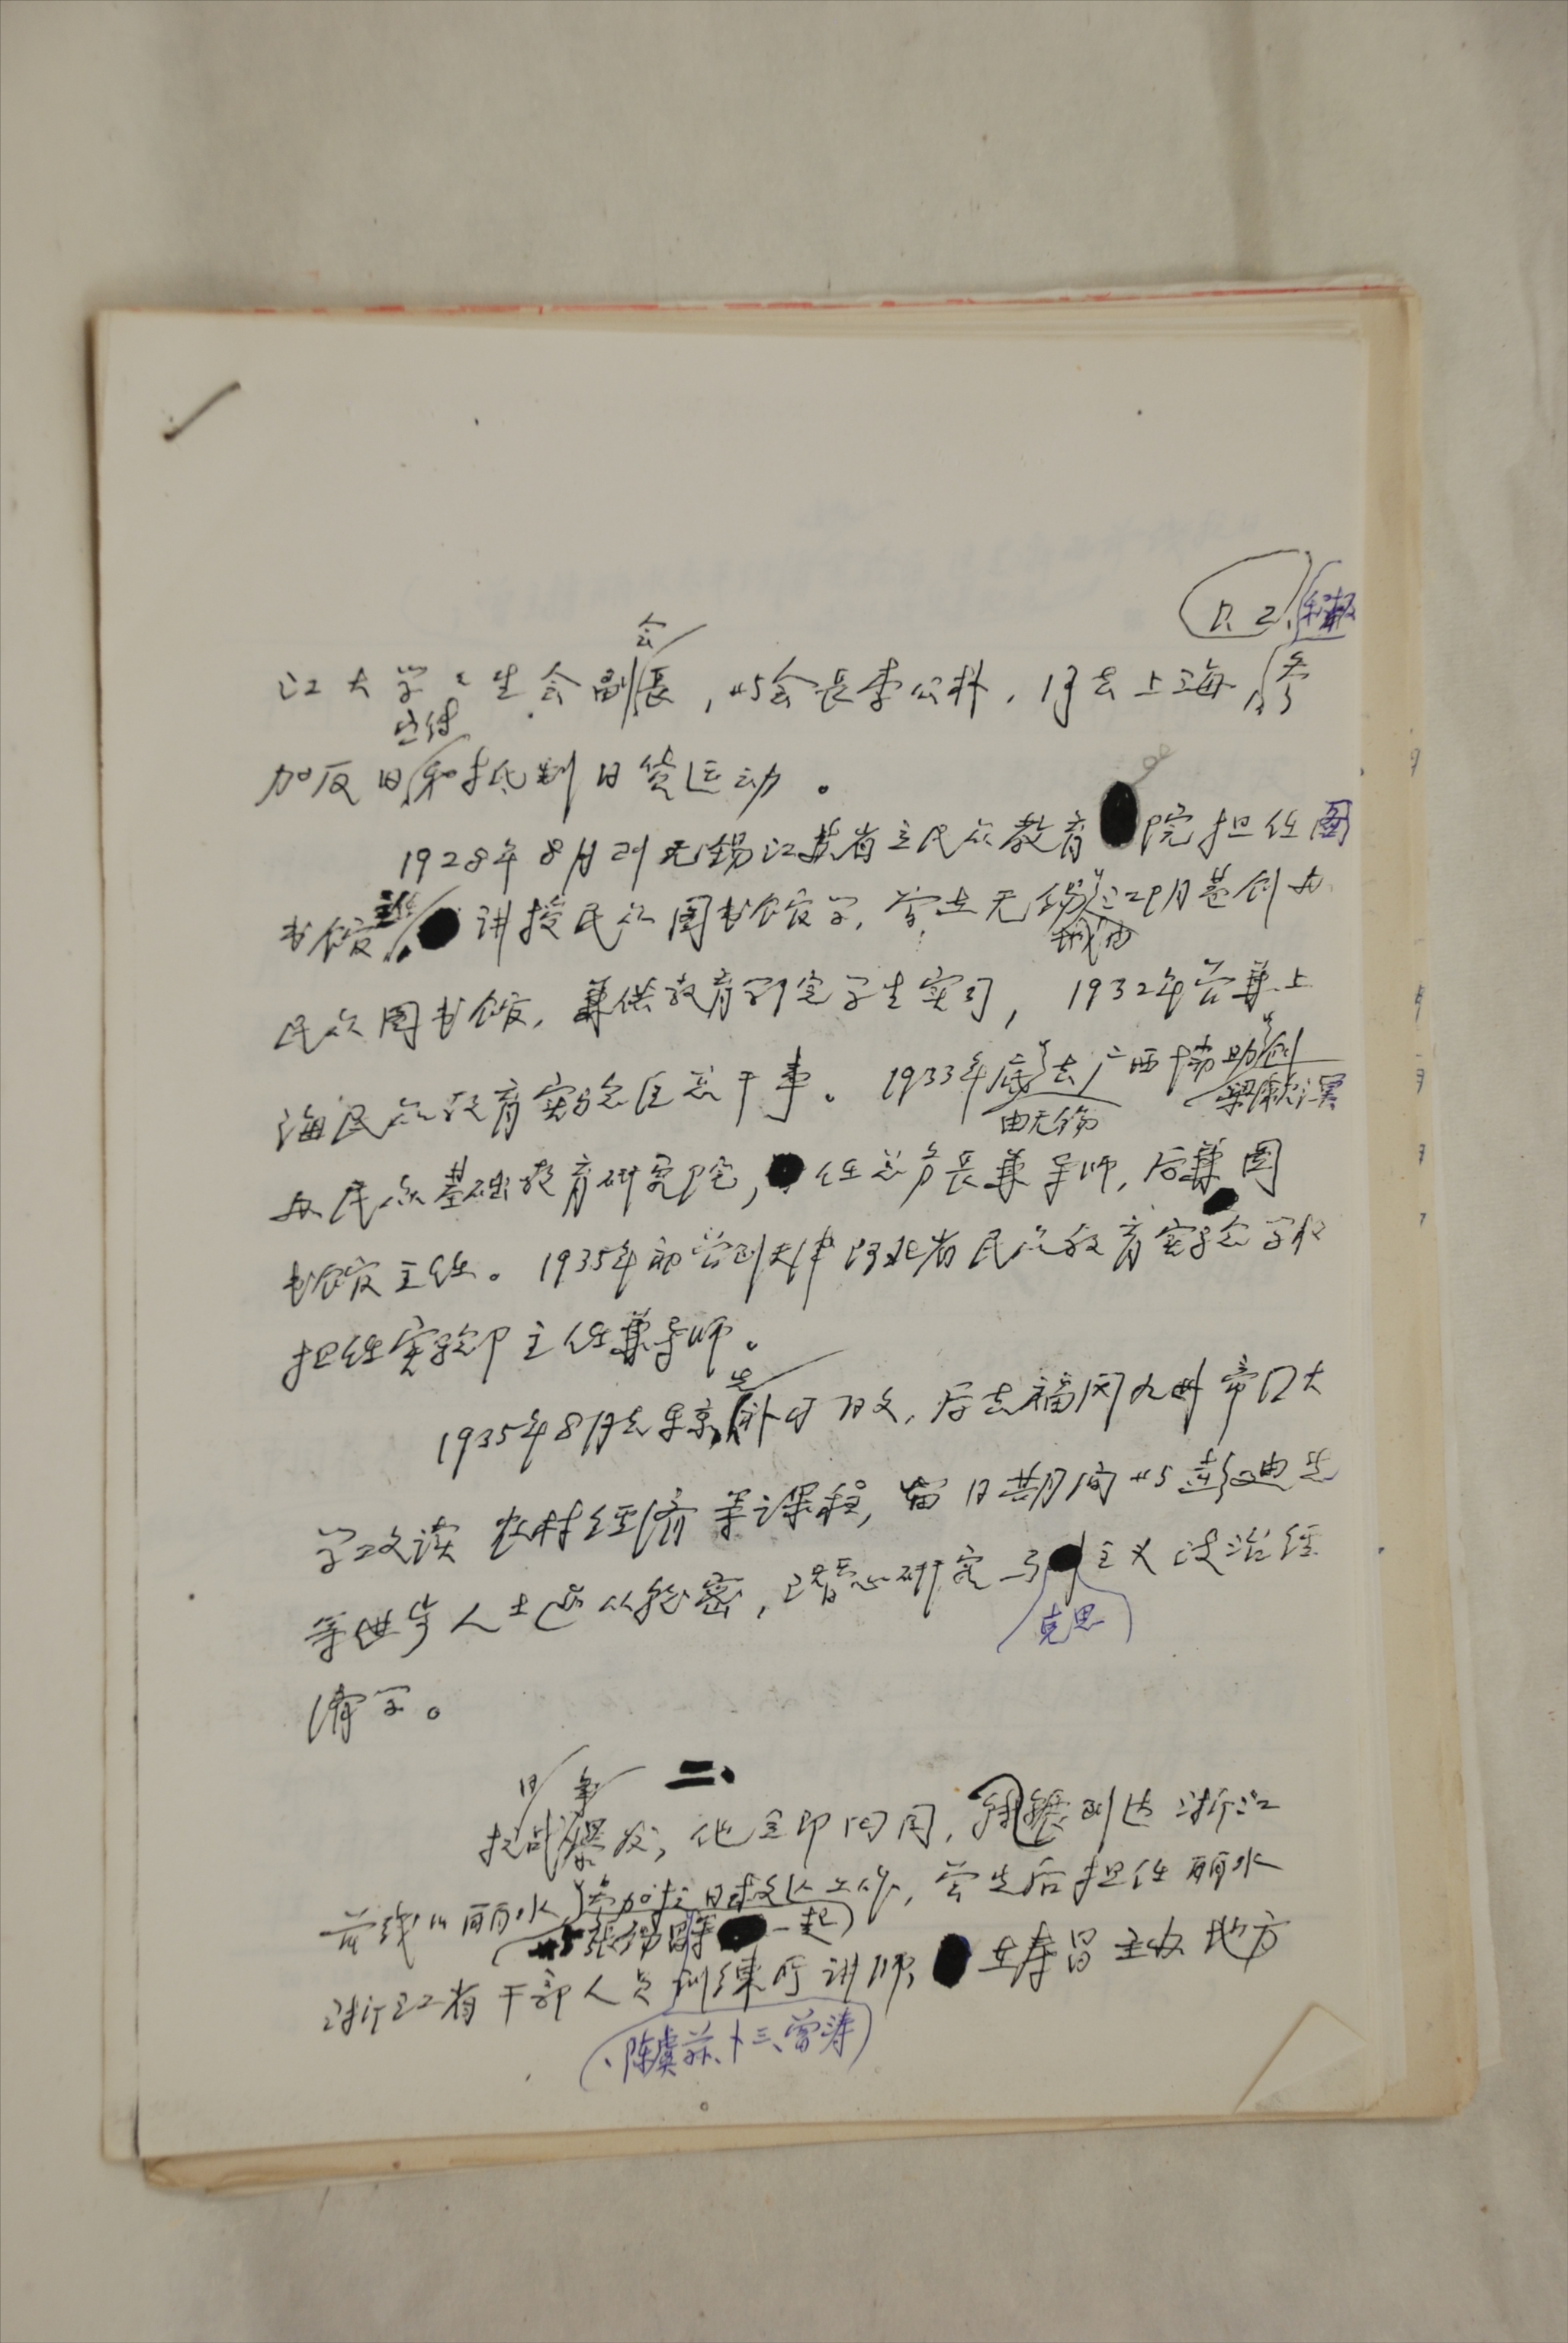 P.2.
会
江大学学生会副会长，与会长李公朴，同去上海参
宣传
加反日和抵制日货运动。
1928年8月到无锡江苏省立民众教育院担任图
书馆主任 讲授民众图书馆学，曾在无锡江阴巷创办
城内
民众图书馆，兼供教育学院学生实习，1932年曾兼上
海民众教育实验区总干事。1933年底去广西协助创
由无锡 梁漱溟
办民众基础教育研究院，任总务长兼导师，后兼图
书馆主任。1935年初曾到天津河北省民众教育实验学校
担任实验部主任兼导师。
先
1935年8月去东京补习日文，后去福冈九州帝国大
学攻读农村经济等课程，留日期间与彭迪先
等进步人士过从甚密，潜心研究马 主义政治经
克思
济学。
二、
日 争
抗战爆发，他立即回国，辗转到达浙江
前线的丽水参加抗日救亡工作，曾先后担任丽水
与张锡昌 一起
浙江省干部人员训练所讲师，在寿昌主办地方
、陈虞荪、卜三、曾涛